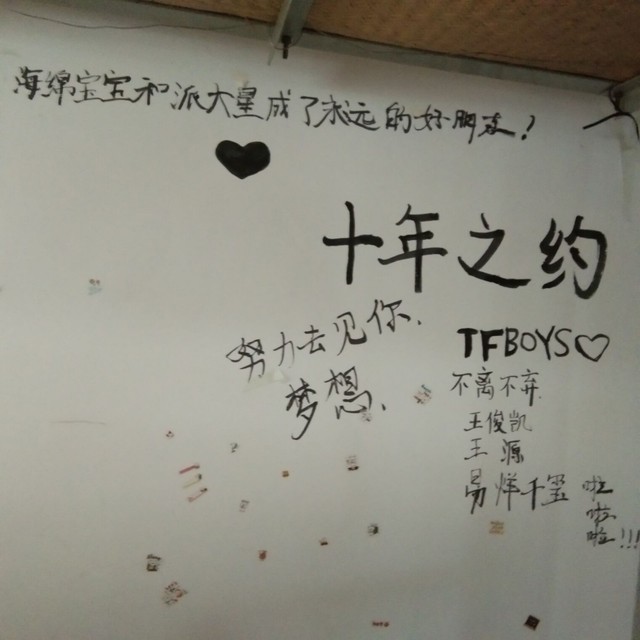 海绵宝宝和派大星成了永远的好朋友!
十年之约
努力去见你.
梦想.
TFBOYS♡
不离不弃
王俊凯
王 源
易烊千玺
啦
啦
啦!!!